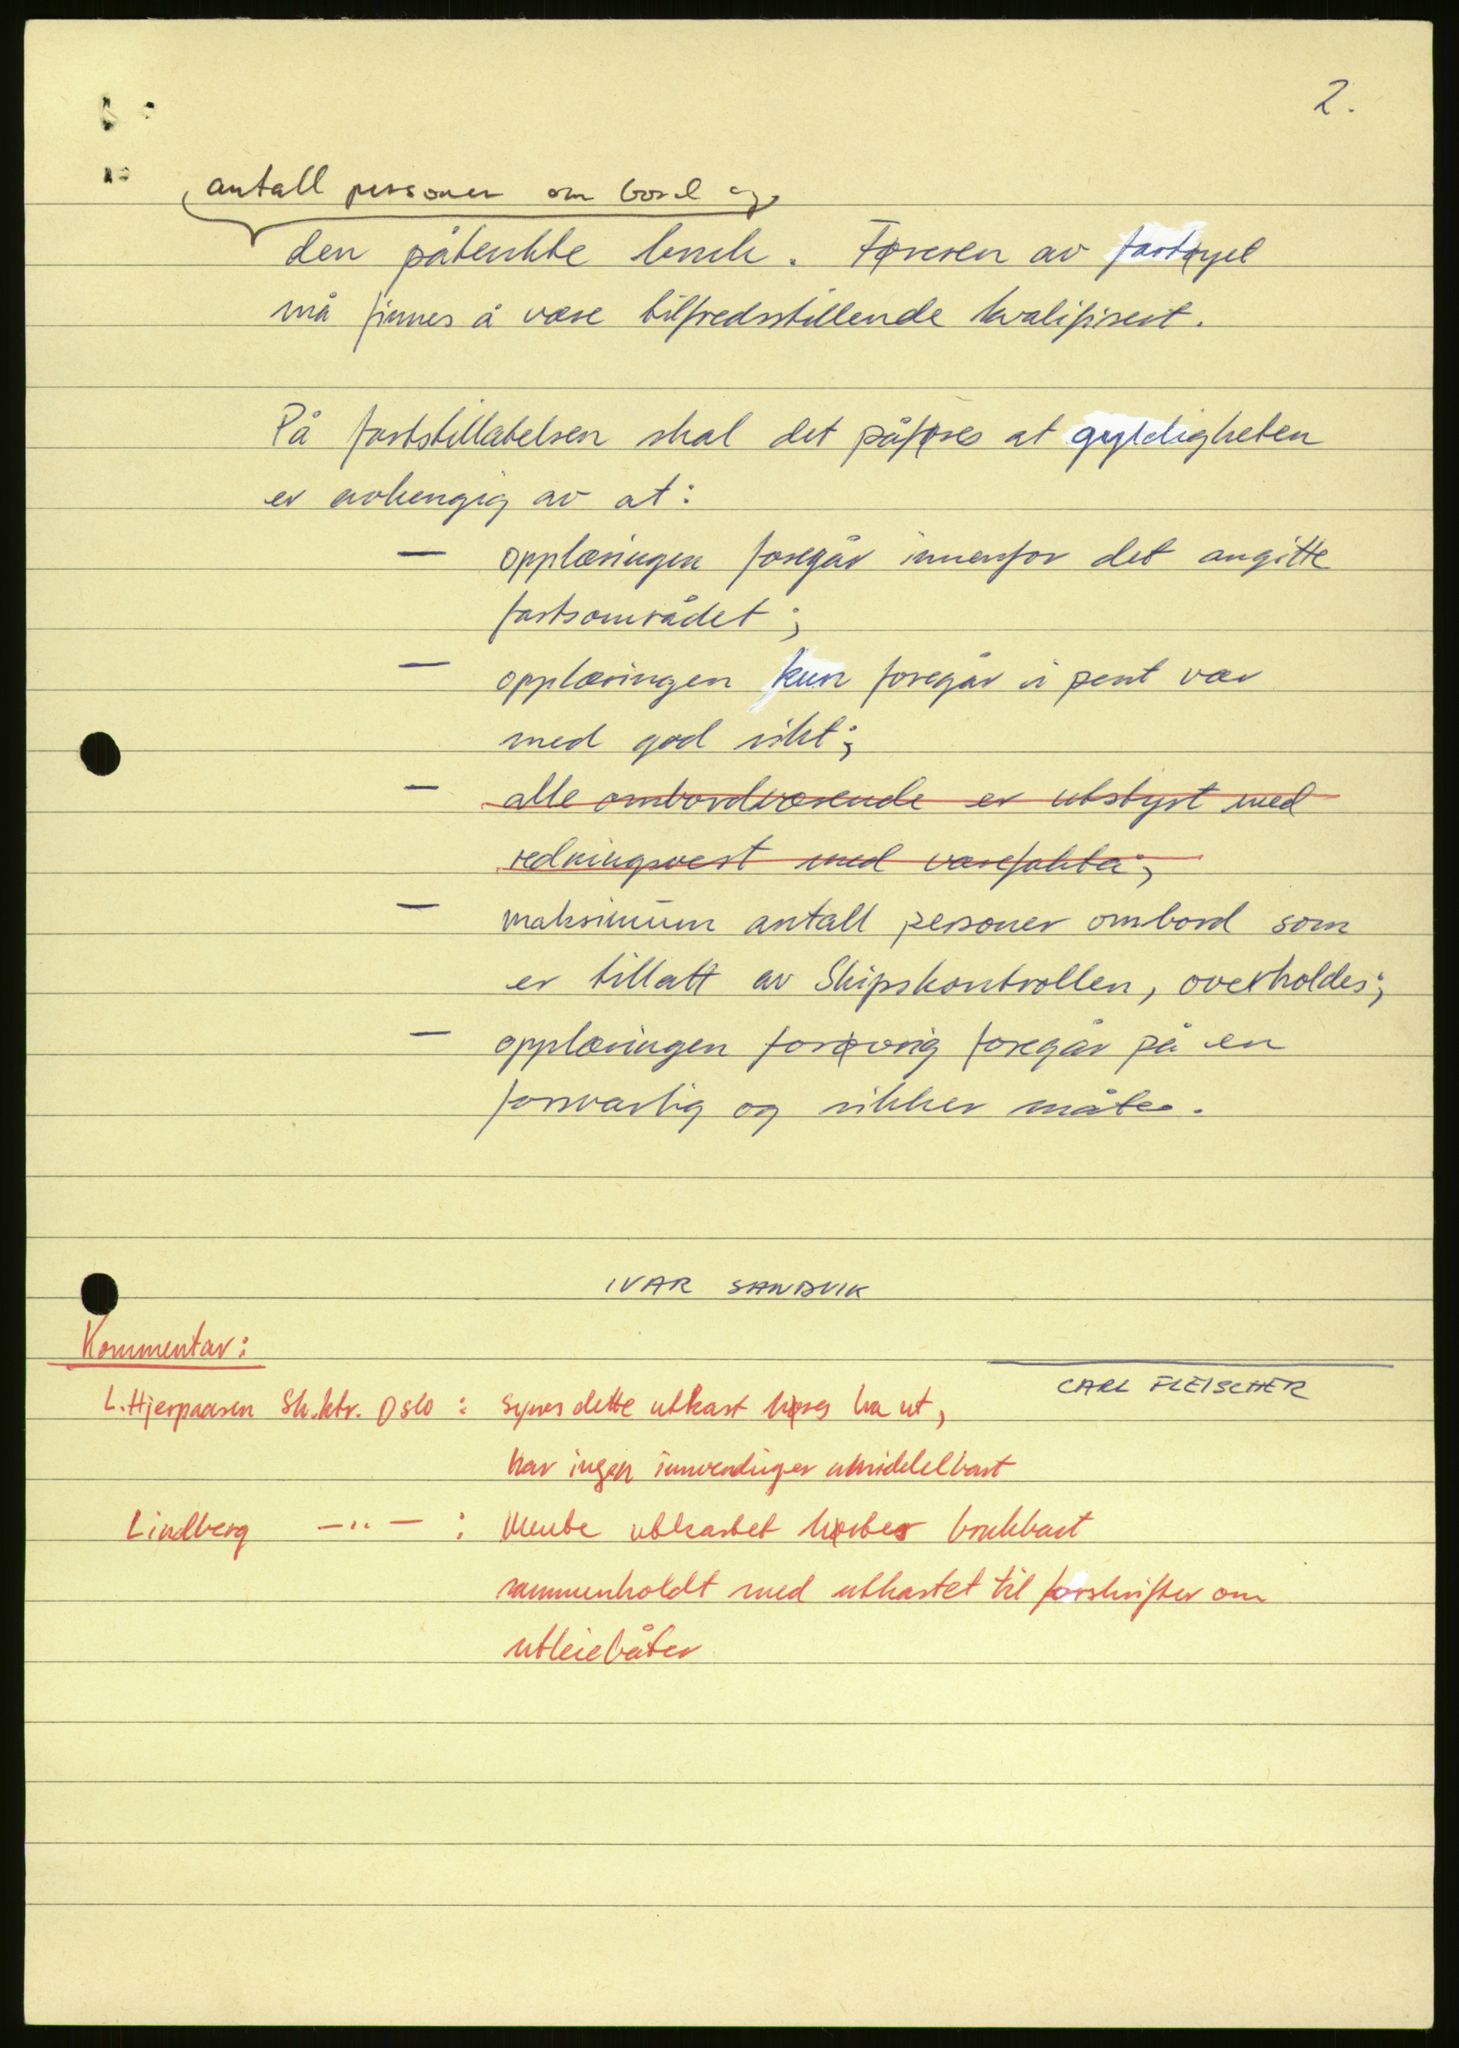 2.
antall personer om bord og
den påtenkte bruk. Føreren av fartøyet
må finnes å være tilfredsstillende kvalifisert.
På fartstillatelsen skal det påføres at gyldigheten
er avhengig av at:
— opplæringen foregår innenfor det angitte
fartsområdet;
— opplæringen kun foregår i pent vær
med god sikt;
— alle ombordværende er utstyrt med
redningsvest med
— maksimum antall personer ombord som
er tillatt av Skipskontrollen, overholdes;
— opplæringen forøvrig foregår på en
forsvarlig og sikker måte.
IVAR SANDVIK
Kommentar:
CARL FLEISCHER
L. Hjerpaasen Sk.ktr. Oslo : Synes dette utkast høres bra ut,
har ingen innvendinger umiddelbart
Lindberg —"— : Mente utkastet hørtes brukbart
sammenholdt med utkastet til forskrifter om
utleiebåter